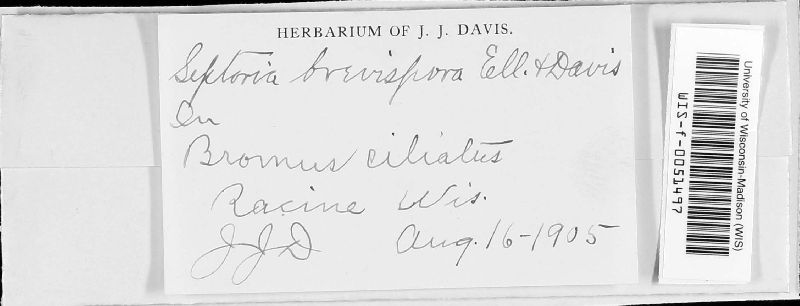 HERBARIUM OF J. J. DAVIS.
Septoria brevispora Ell. & Davis
On
Bromus ciliatus
Racine Wis.
JJD Aug. 16-1905
University of Wisconsin-Madison (WIS)
WIS-f-0051497